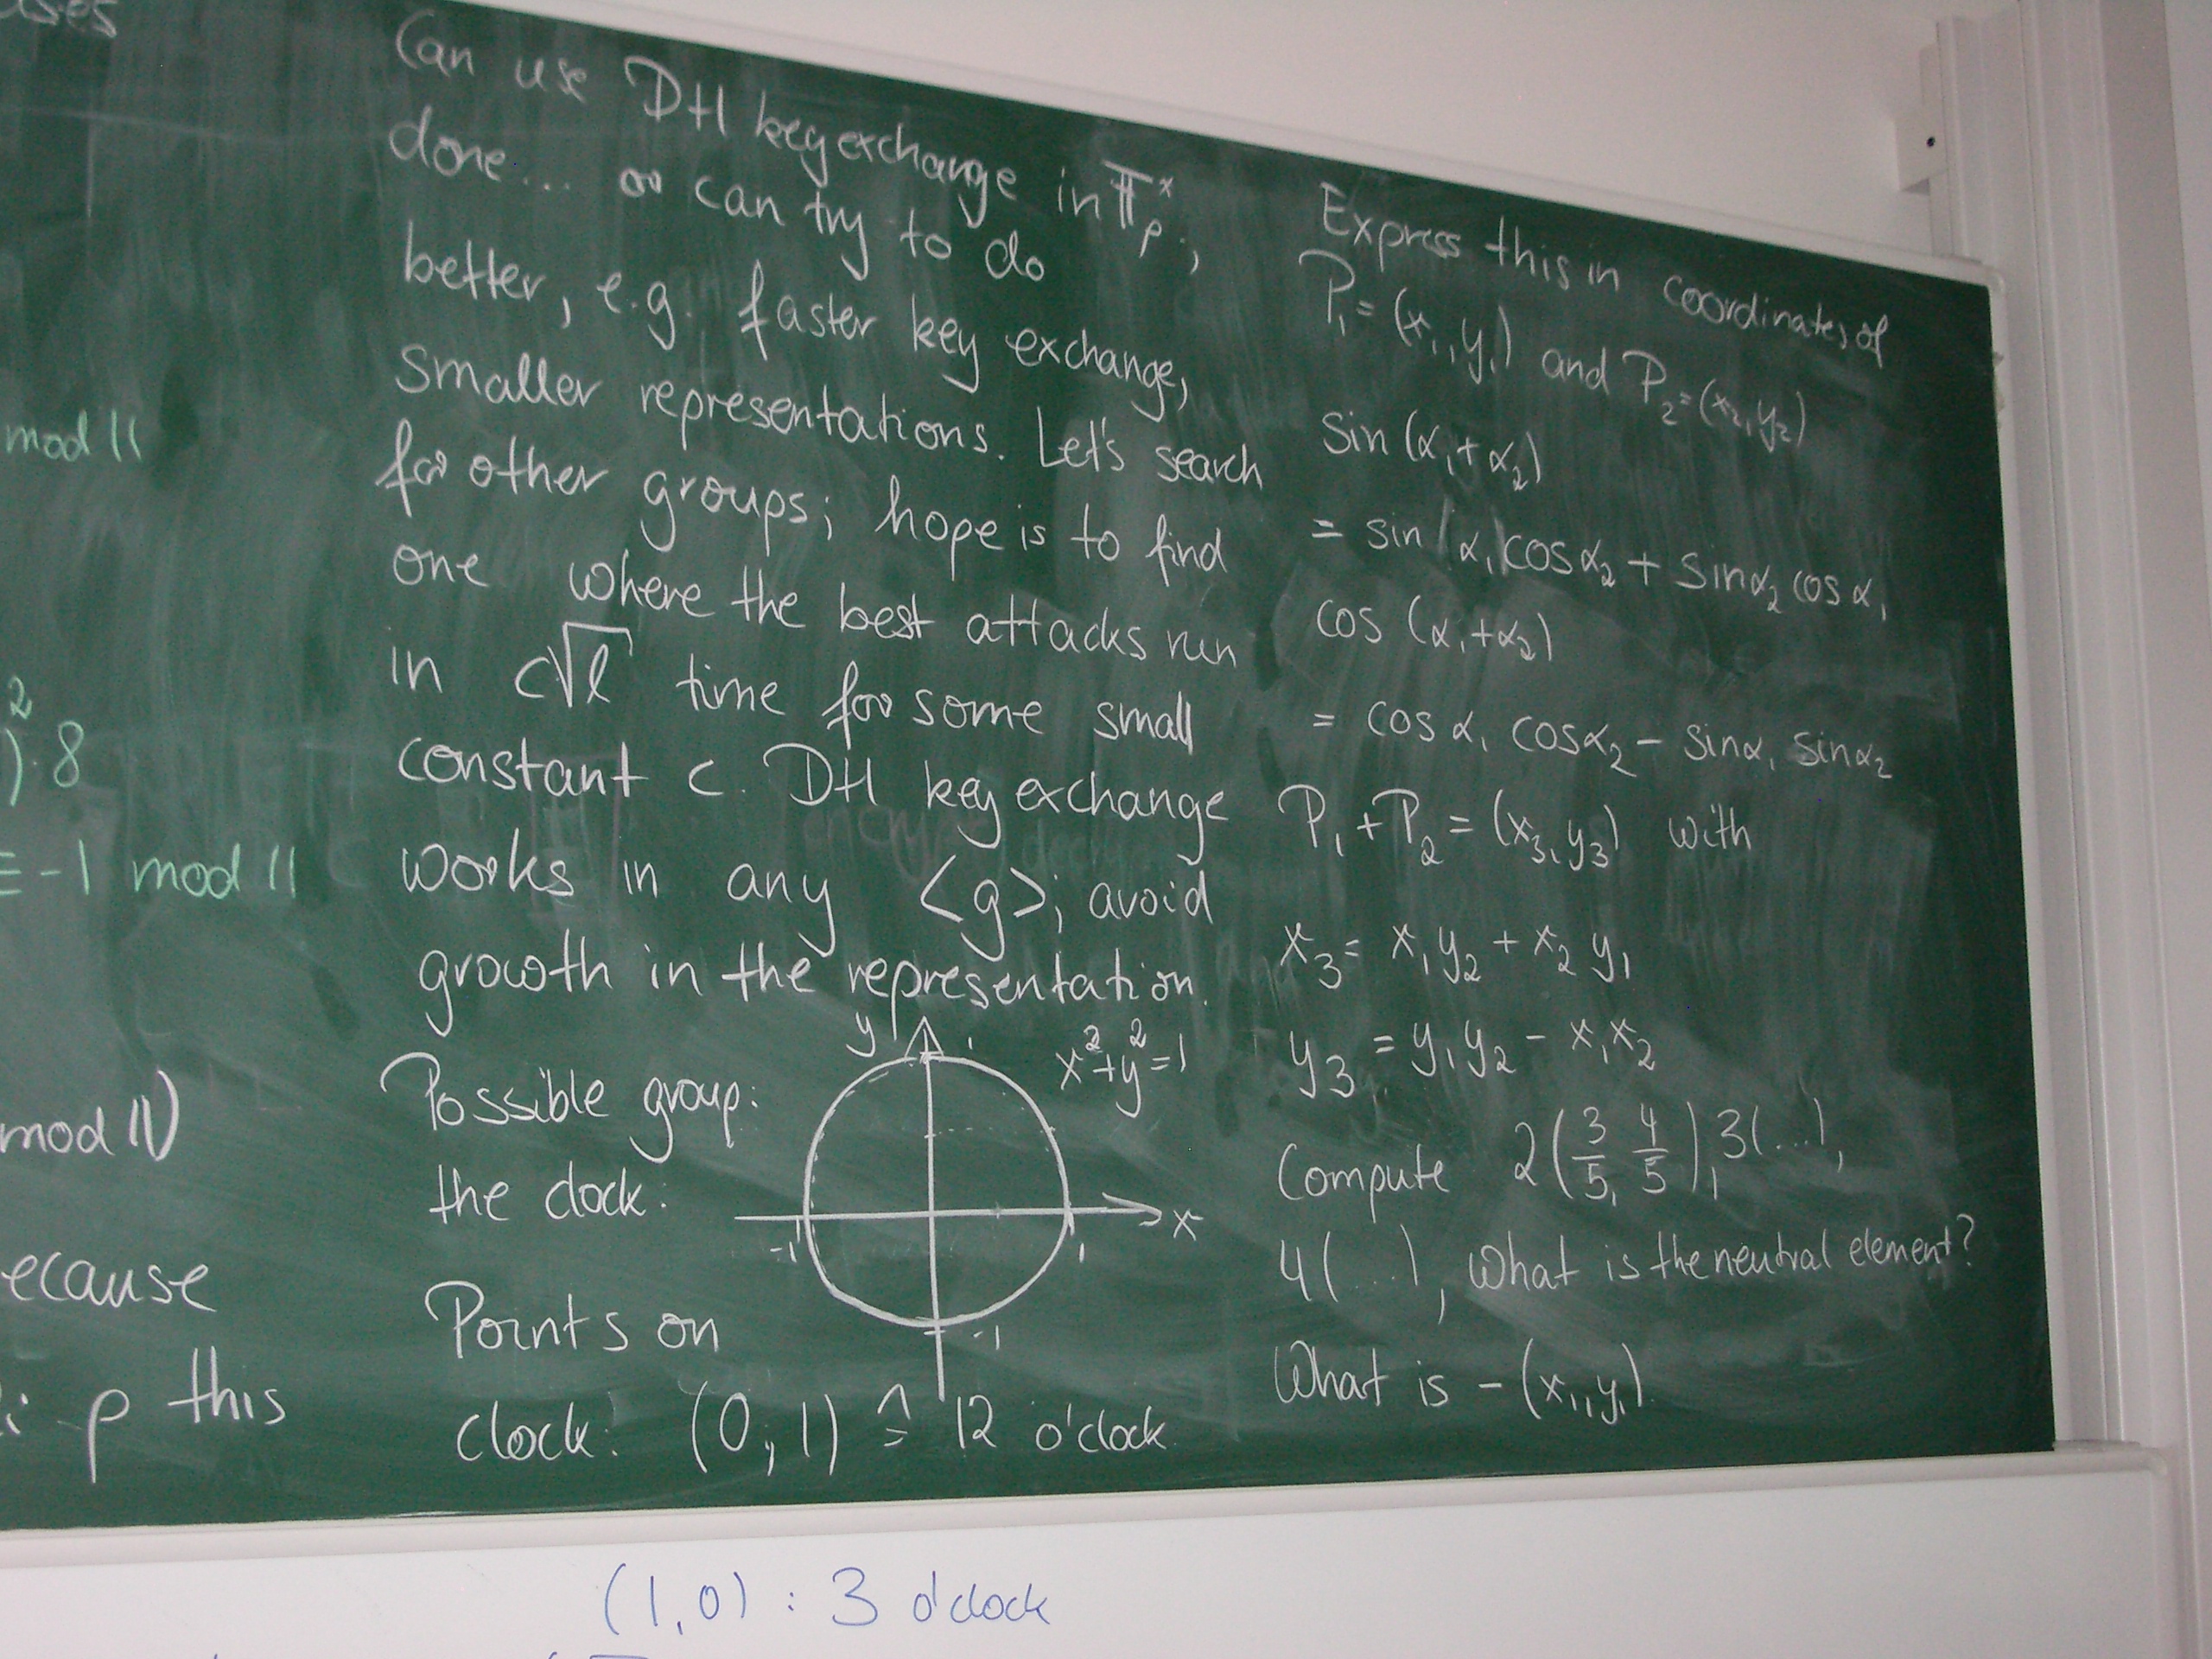 uses
mod 11
2
) · 8
≡ -1 mod 11
mod 11)
ecause
p this
Can use DH key exchange in 𝔽ₚˣ ;
done... or can try to do
better, e.g. faster key exchange,
smaller representations. Let's search
for other groups; hope is to find
one where the best attacks run
in c√l time for some small
constant c. DH key exchange
works in any <g>; avoid
growth in the representation.
Possible group:
the clock:
y
x² + y² = 1
x
-1
1
-1
Points on
clock: (0,1) ≙ 12 o'clock.
Express this in coordinates of
P₁ = (x₁, y₁) and P₂ = (x₂, y₂)
sin (α₁ + α₂)
= sin (α₁) cos α₂ + sin α₂ cos α₁
cos (α₁ + α₂)
= cos α₁ cos α₂ - sin α₁ sin α₂
P₁ + P₂ = (x₃, y₃) with
x₃ = x₁ y₂ + x₂ y₁
y₃ = y₁ y₂ - x₁ x₂
Compute 2(3/5, 4/5), 3(...),
4(...), What is the neutral element?
What is -(x₁, y₁)
(1,0) : 3 o'clock